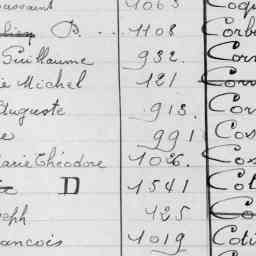 oussaint 1063 Coqu
P. .. 1108 Corb
Guillaume 932. Corn
ie Michel 121 Corr
Auguste 913. Corr
e 991 Cos
Marie Théodore 1026. Cos
D 1541 Cot
seph 125 Co
rancois 1019 Coti